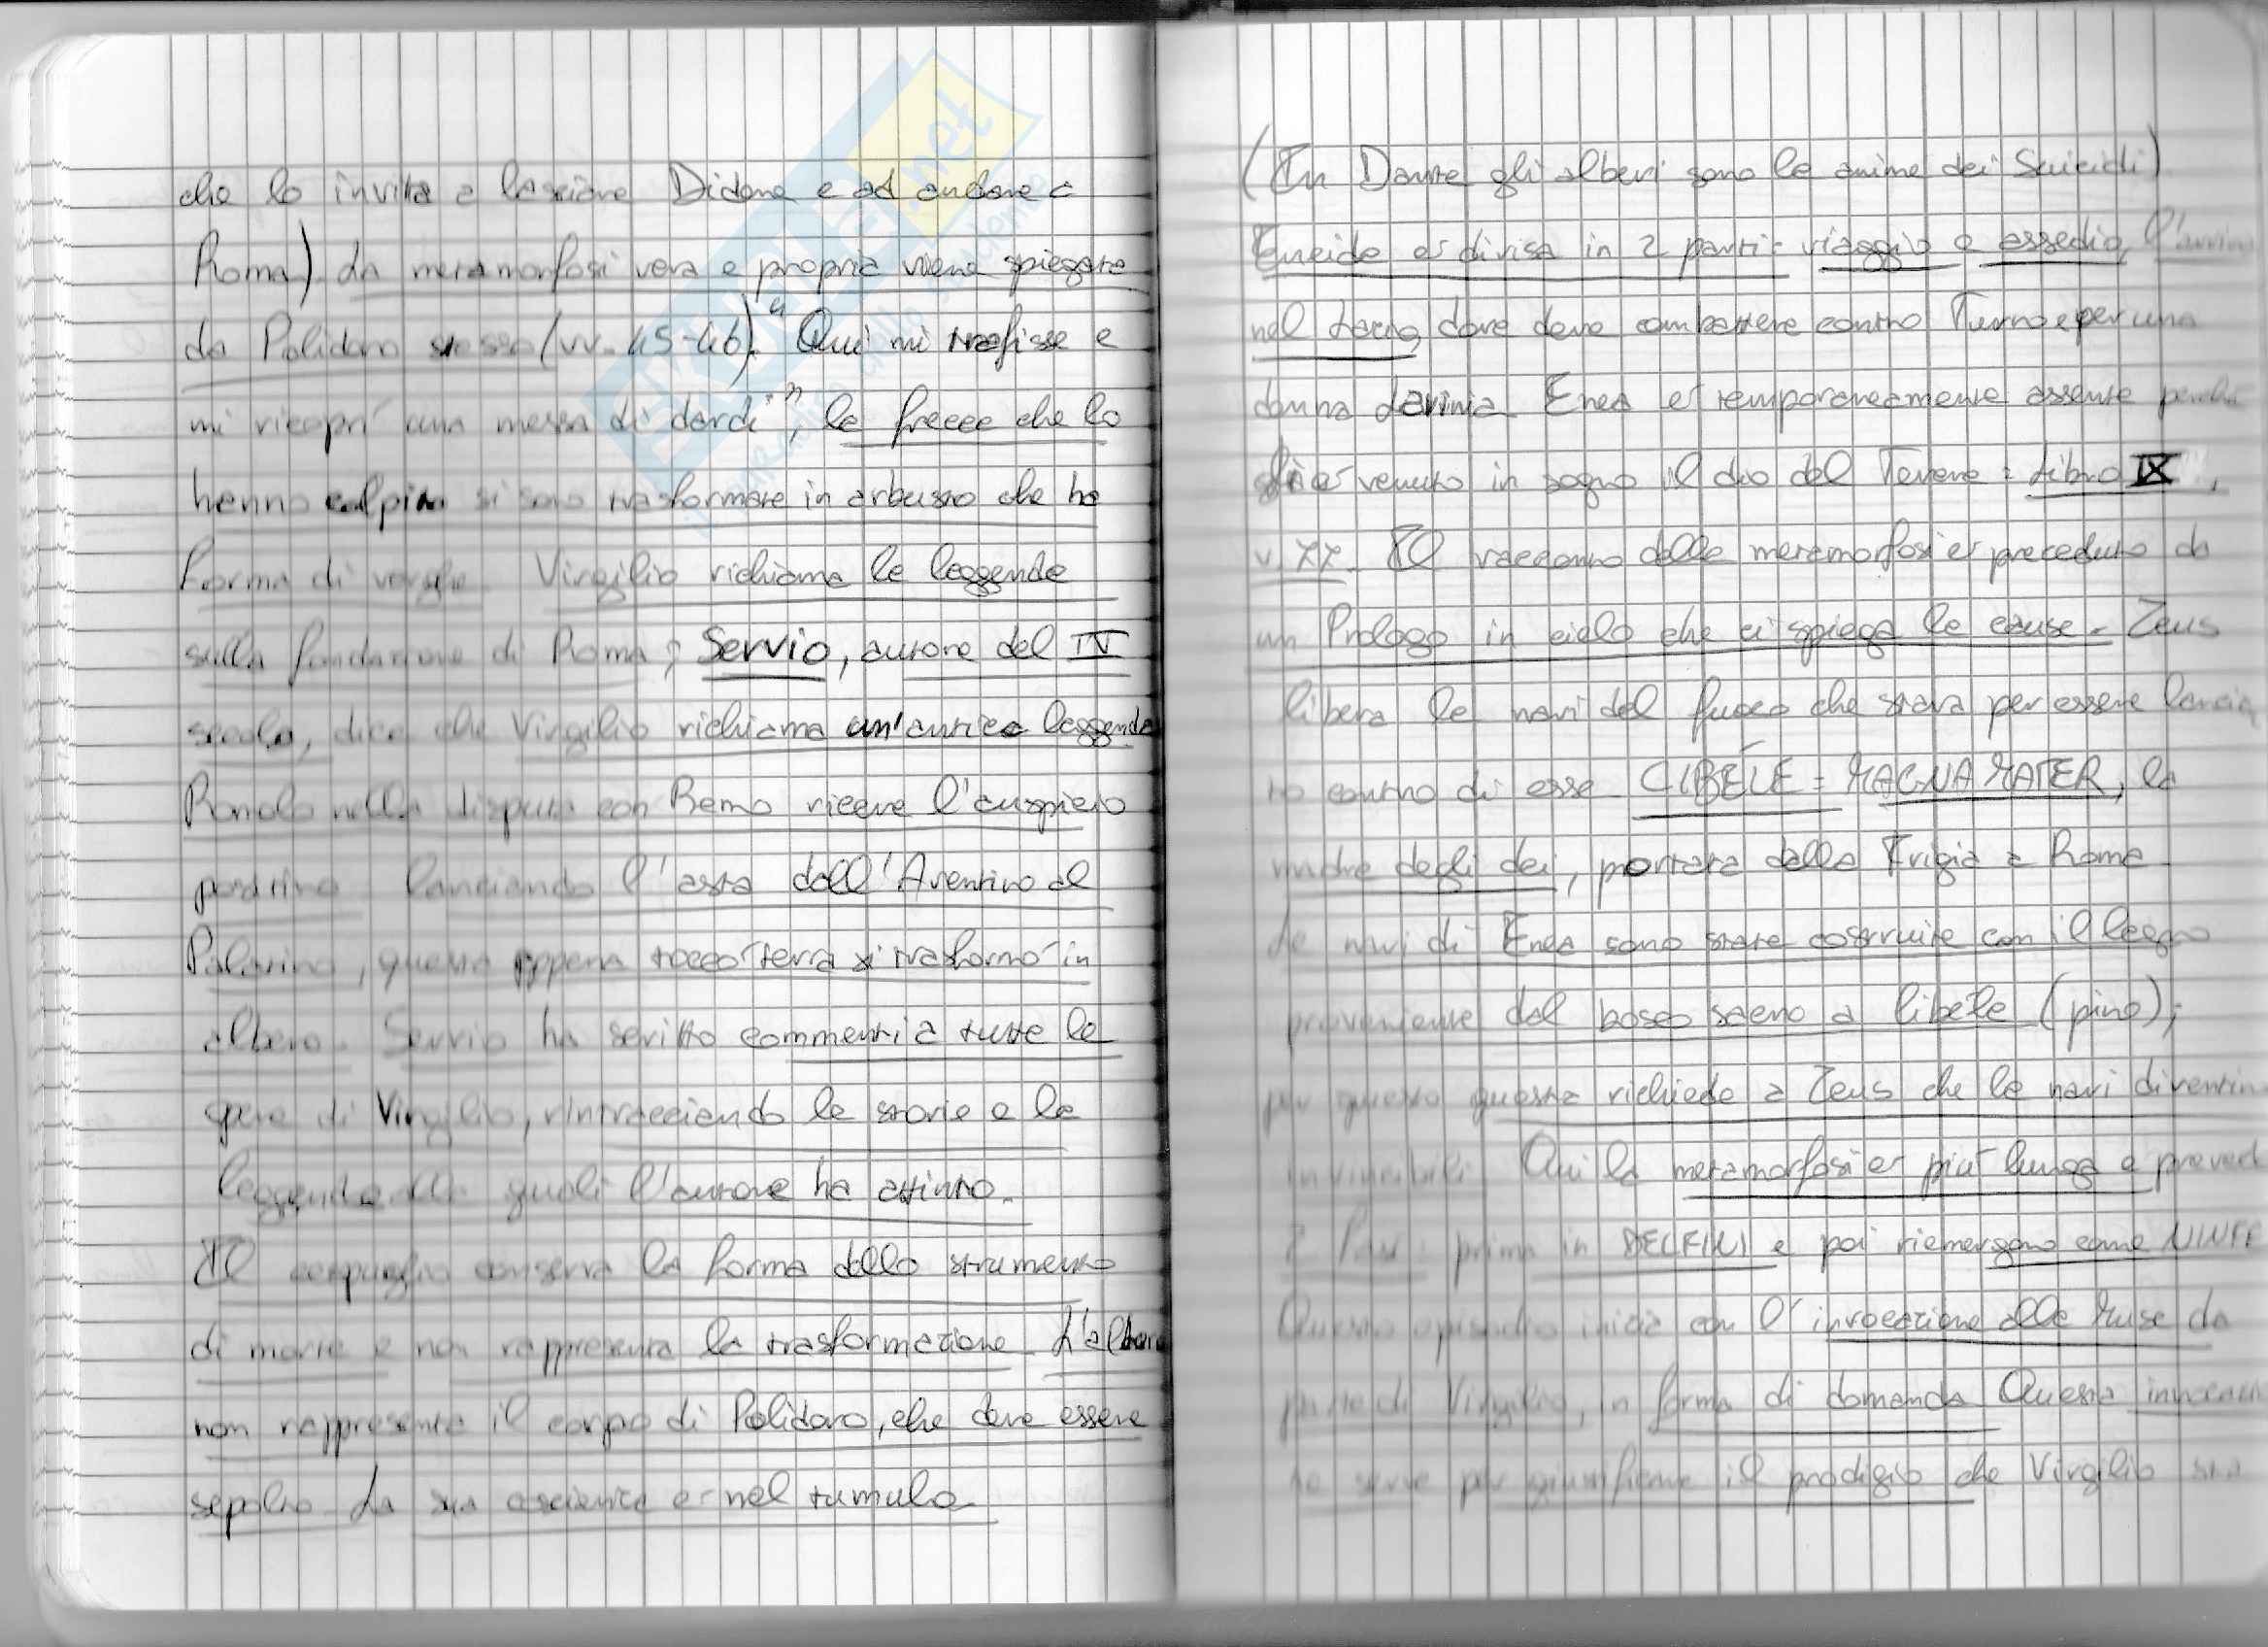 che lo invita a lasciare Didone e ad andare a
Roma). La metamorfosi vera e propria viene spiegata
da Polidoro stesso (vv. 45-46). "Qui mi trafisse e
mi ricoprì una messa di dardi", le frecce che lo
hanno colpito si sono trasformate in arbusto che ha
forma di verghe. Virgilio richiama le leggende
sulla fondazione di Roma; Servio, autore del IV
secolo, dice che Virgilio richiama un'antica leggenda
Romolo nella disputa con Remo riceve l'auspicio
positivo lanciando l'asta dall'Aventino al
Palatino, questa appena toccò terra si trasformò in
albero. Servio ha scritto commenti a tutte le
opere di Virgilio, rintracciando le storie e le
leggende dalle quali l'autore ha attinto.
Il cespuglio conserva la forma dello strumento
di morte e non rappresenta la trasformazione. L'albero
non rappresenta il corpo di Polidoro, che deve essere
sepolto. La sua coscienza è nel tumulo
(In Dante gli alberi sono le anime dei Suicidi)
Eneide è divisa in 2 parti: viaggio e assedio, l'arrivo
nel Lazio, dove deve combattere contro Turno e per una
donna Lavinia. Enea è temporaneamente assente perché
gli è venuto in sogno il dio del Tevere: Libro IX,
v. 77. Il racconto della metamorfosi è preceduto da
un Prologo in cielo che ci spiega le cause. Zeus
libera le navi dal fuoco che stava per essere lancia
to contro di esse. CIBÉLE = MAGNA MATER, la
madre degli dei, portata dalla Frigia a Roma
Le navi di Enea sono state costruite con il legno
proveniente dal bosco sacro a Cibele (pino);
per questo questa richiede a Zeus che le navi diventin
invincibili. Qui la metamorfosi è più lunga e preved
2 Fasi: prima in DELFINI e poi riemergono come NINFE
Questo episodio inizia con l'invocazione alle Muse da
parte di Virgilio, in forma di domanda. Questa invocazio
ne serve per giustificare il prodigio che Virgilio sta